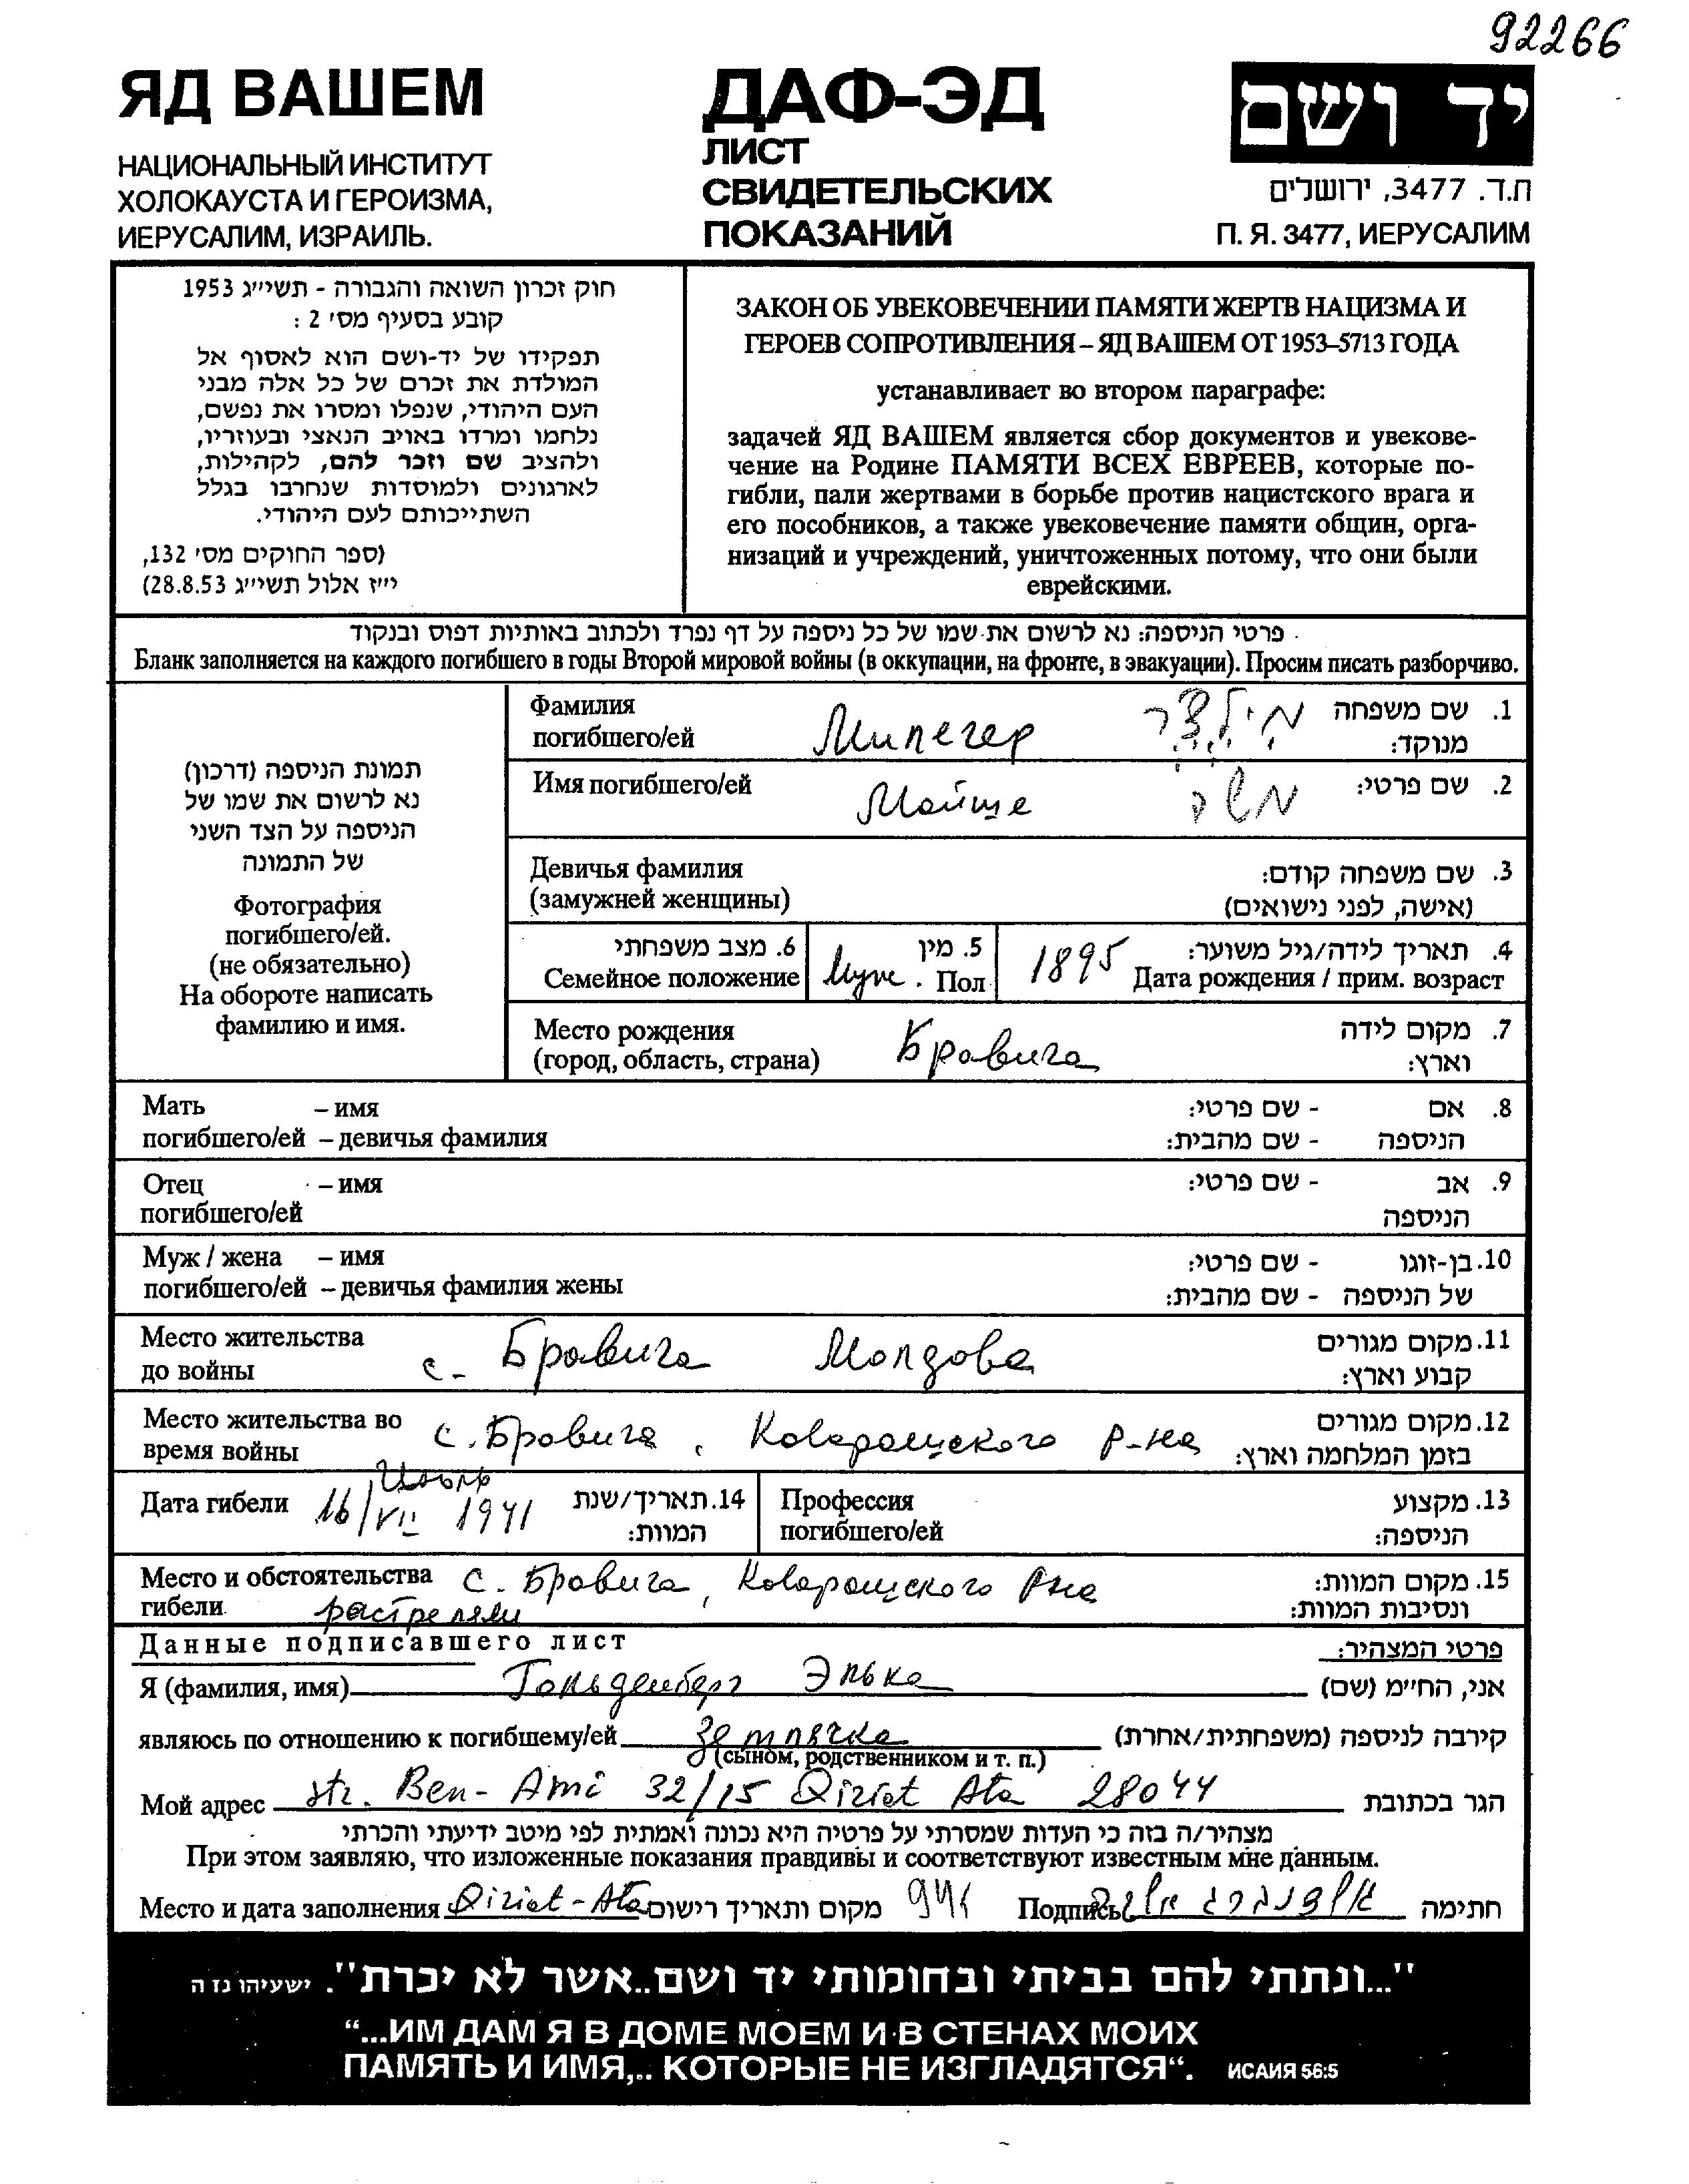 92266
ЯД ВАШЕМ
НАЦИОНАЛЬНЫЙ ИНСТИТУТ
ХОЛОКАУСТА И ГЕРОИЗМА,
ИЕРУСАЛИМ, ИЗРАИЛЬ.
ДАФ-ЭД
ЛИСТ
СВИДЕТЕЛЬСКИХ
ПОКАЗАНИЙ
יד ושם
ת.ד. 3477, ירושלים
П. Я. 3477, ИЕРУСАЛИМ
חוק זכרון השואה והגבורה - תשי״ג 1953
קובע בסעיף מס׳ 2 :
תפקידו של יד-ושם הוא לאסוף אל
המולדת את זכרם של כל אלה מבני
העם היהודי, שנפלו ומסרו את נפשם,
נלחמו ומרדו באויב הנאצי ובעוזריו,
ולהציב שם וזכר להם, לקהילות,
לארגונים ולמוסדות שנחרבו בגלל
השתייכותם לעם היהודי.
(ספר החוקים מס׳ 132,
י״ז אלול תשי״ג 28.8.53)
ЗАКОН ОБ УВЕКОВЕЧЕНИИ ПАМЯТИ ЖЕРТВ НАЦИЗМА И
ГЕРОЕВ СОПРОТИВЛЕНИЯ – ЯД ВАШЕМ ОТ 1953–5713 ГОДА
устанавливает во втором параграфе:
задачей ЯД ВАШЕМ является сбор документов и увекове-
чение на Родине ПАМЯТИ ВСЕХ ЕВРЕЕВ, которые по-
гибли, пали жертвами в борьбе против нацистского врага и
его пособников, а также увековечение памяти общин, орга-
низаций и учреждений, уничтоженных потому, что они были
еврейскими.
פרטי הניספה: נא לרשום את שמו של כל ניספה על דף נפרד ולכתוב באותיות דפוס ובנקוד
Бланк заполняется на каждого погибшего в годы Второй мировой войны (в оккупации, на фронте, в эвакуации). Просим писать разборчиво.
תמונת הניספה (דרכון)
נא לרשום את שמו של
הניספה על הצד השני
של התמונה
Фотография
погибшего/ей.
(не обязательно)
На обороте написать
фамилию и имя.
Фамилия
погибшего/ей Милегер
1. שם משפחה
מנוקד:
Имя погибшего/ей Мойше משה 2. שם פרטי:
Девичья фамилия
(замужней женщины)
3. שם משפחה קודם:
(אישה, לפני נישואים)
6. מצב משפחתי
Семейное положение
5. מין
Муж. Пол
1895
4. תאריך לידה/גיל משוער:
Дата рождения / прим. возраст
Место рождения
(город, область, страна) Бровича
7. מקום לידה
וארץ:
Мать – имя
погибшего/ей – девичья фамилия
8. אם - שם פרטי:
הניספה - שם מהבית:
Отец – имя
погибшего/ей
9. אב - שם פרטי:
הניספה
Муж / жена – имя
погибшего/ей – девичья фамилия жены
10. בן-זוגו - שם פרטי:
של הניספה - שם מהבית:
Место жительства
до войны с. Бровича Молдова
11. מקום מגורים
קבוע וארץ:
Место жительства во
время войны с. Бровича, Коларашского р-на
12. מקום מגורים
בזמן המלחמה וארץ:
Дата гибели 16/VII 1941
14. תאריך/שנת
המוות:
Профессия
погибшего/ей
13. מקצוע
הניספה:
Место и обстоятельства с. Бровича, Коларашского Рна
гибели растреляли
15. מקום המוות:
ונסיבות המוות:
Данные подписавшего лист פרטי המצהיר:
Я (фамилия, имя) Гольденберг Элька אני, החי״מ (שם)
являюсь по отношению к погибшему/ей землячка קירבה לניספה (משפחתית/אחרת)
(сыном, родственником и т. п.)
Мой адрес str. Ben-Ami 32/15 Qiriat Ata 28044 הגר בכתובת
מצהיר/ה בזה כי העדות שמסרתי על פרטיה היא נכונה ואמתית לפי מיטב ידיעתי והכרתי
При этом заявляю, что изложенные показания правдивы и соответствуют известным мне данным.
Место и дата заполнения Qiriat-Ata מקום ותאריך רישום Подпись חתימה
"...ונתתי להם בביתי ובחומותי יד ושם..אשר לא יכרת". ישעיהו נז ה
“...ИМ ДАМ Я В ДОМЕ МОЕМ И В СТЕНАХ МОИХ
ПАМЯТЬ И ИМЯ,.. КОТОРЫЕ НЕ ИЗГЛАДЯТСЯ“. ИСАИЯ 56:5